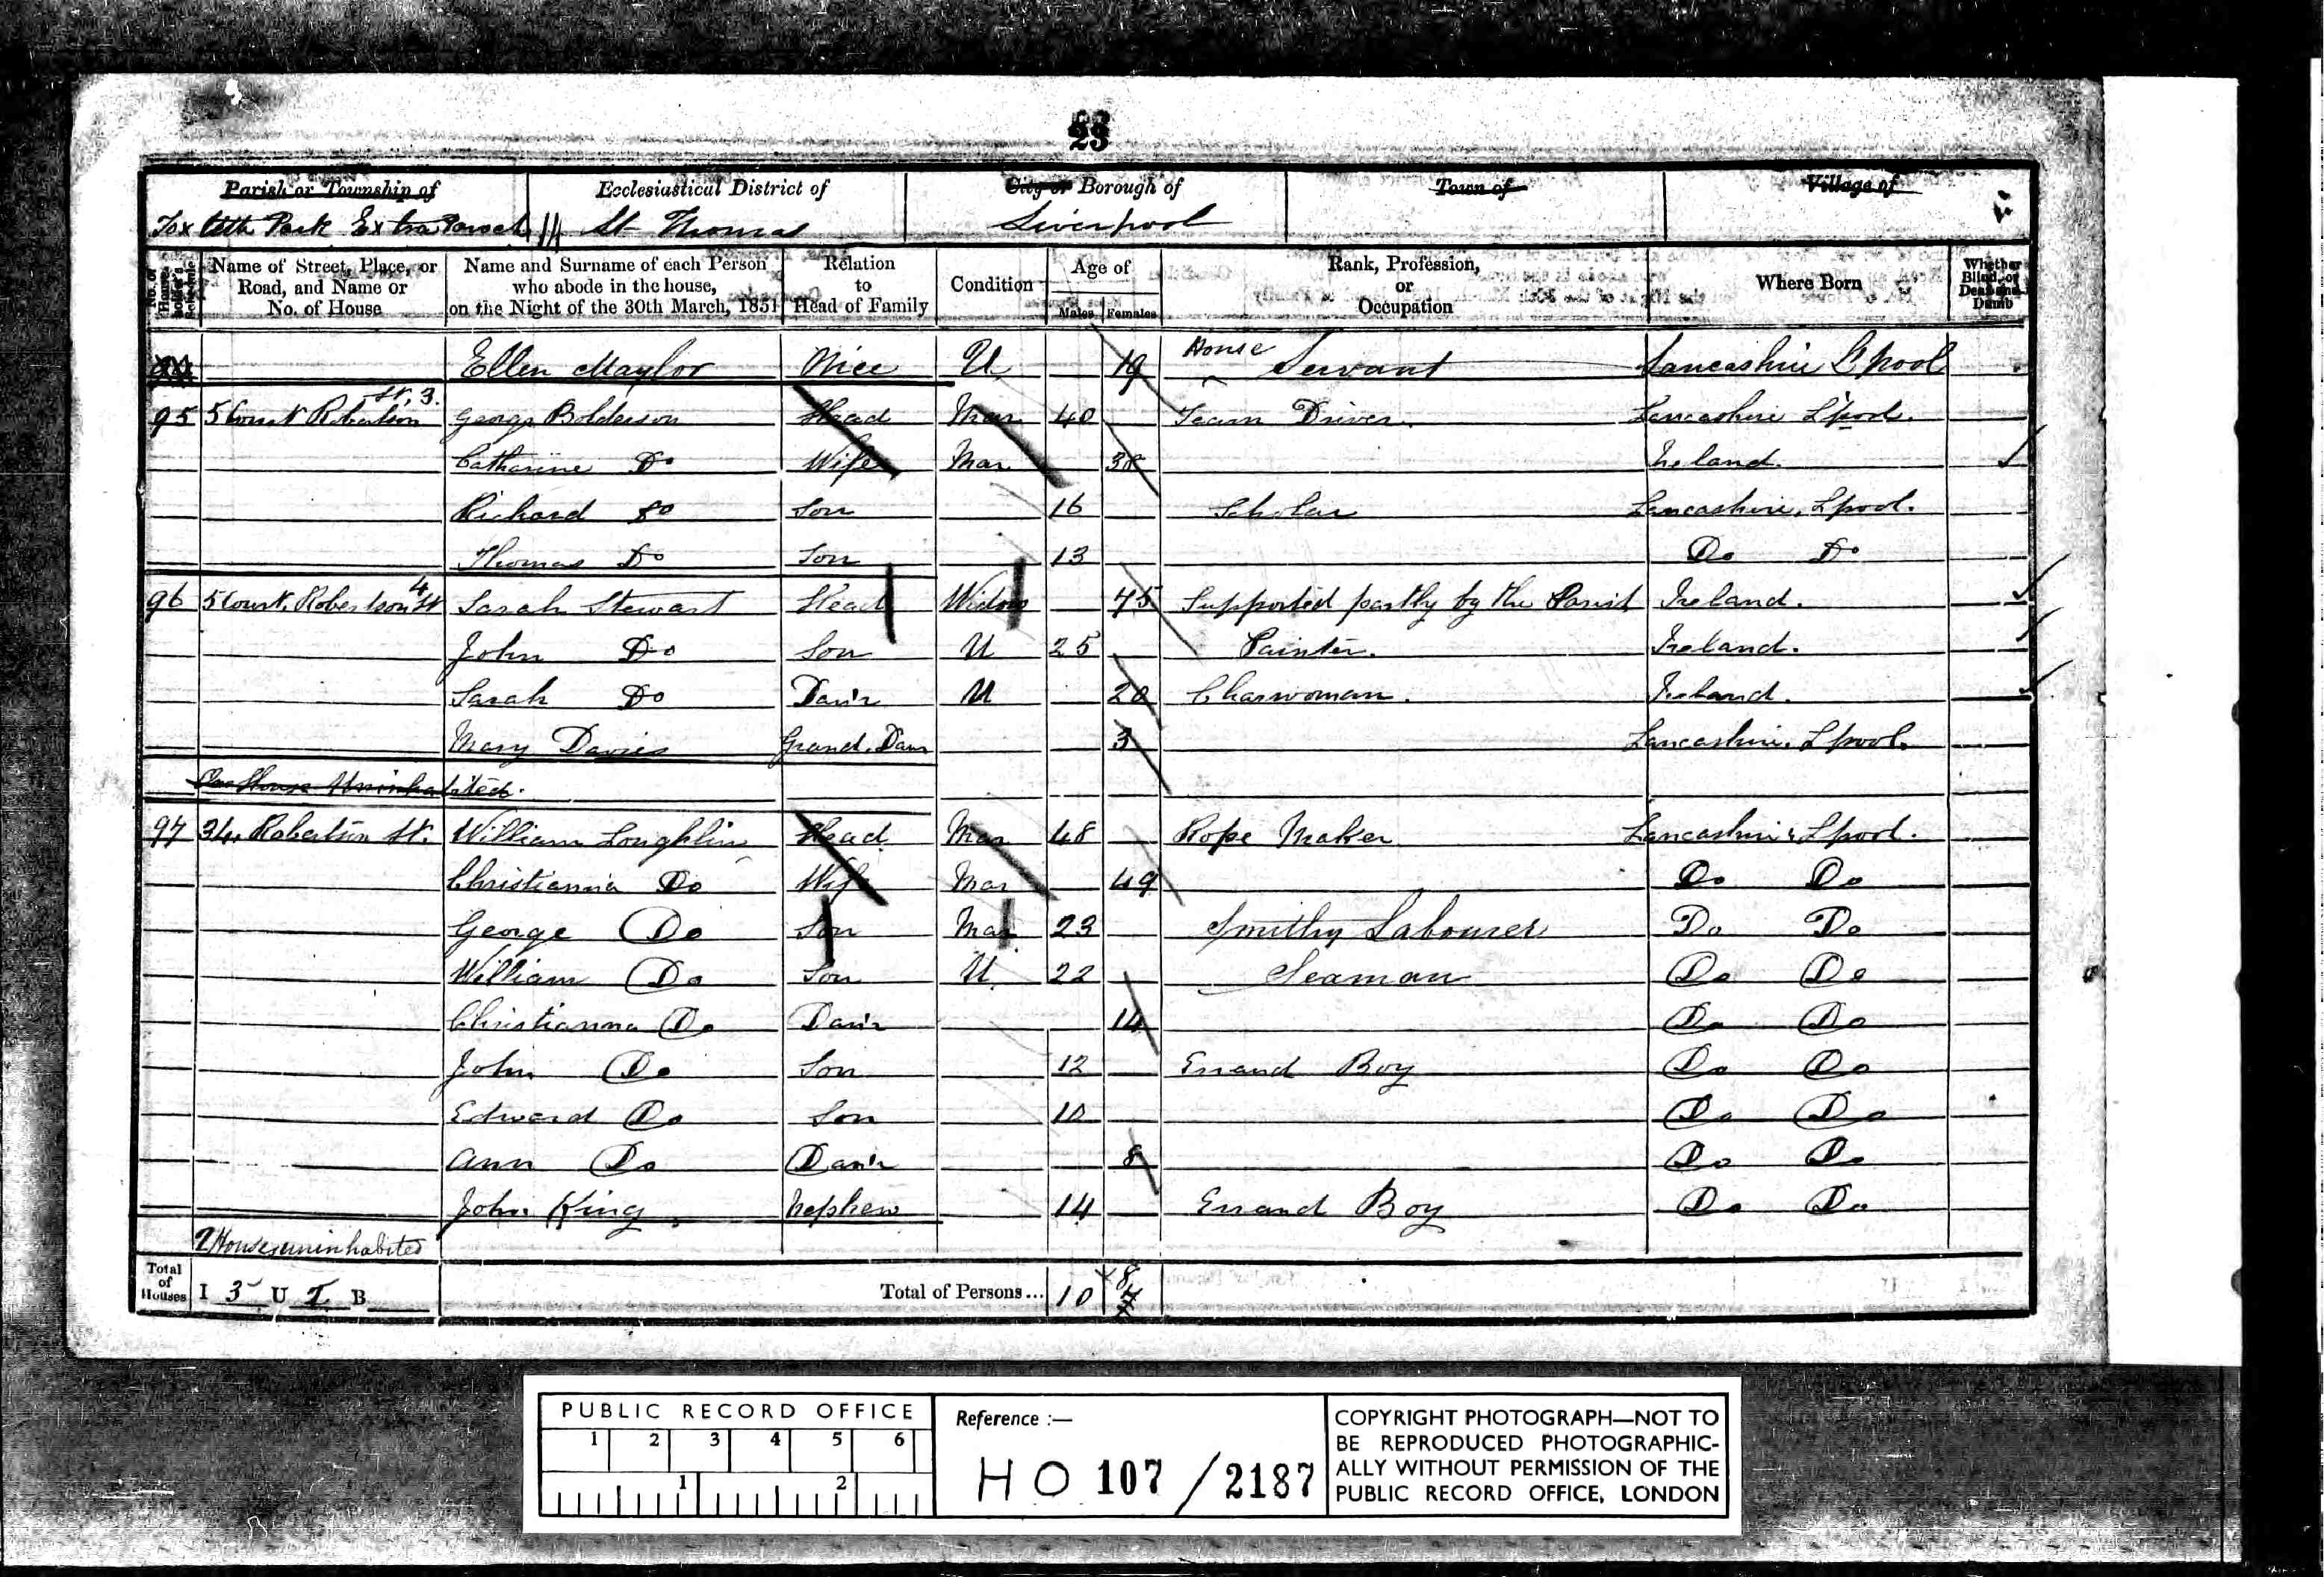 23
Parish or Township of Ecclesiastical District of City or Borough of Town of Village of
Toxteth Park Extra Paroch St Thomas Liverpool
No. of House- holder's Schedule Name of Street, Place, or Road, and Name or No. of House Name and Surname of each Person who abode in the house, on the Night of the 30th March, 1851 Relation to Head of Family Condition Age of Males Females Rank, Profession, or Occupation Where Born Whether Blind, or Deaf-and-Dumb
Ellen Maylor Niece U 19 House Servant Lancashire L'pool
95 5 Court Robertson St, 3. George Bolderson Head Mar 40 Team Driver. Lancashire L'pool.
Catharine Do Wife Mar 38 Ireland.
Richard Do Son 16 Scholar Lancashire, Lpool.
Thomas Do Son 13 Do Do
96 5 Court, Robertson St 4 Sarah Stewart Head Widow 75 Supported partly by the Parish Ireland.
John Do Son U 25 Painter. Ireland.
Sarah Do Dau'r U 20 Charwoman. Ireland.
Mary Davies Grand. Daur 3 Lancashire. Lpool.
One House Uninhabited.
97 34, Robertson St. William Loughlin Head Mar 48 Rope Maker Lancashire, Lpool.
Christianna Do Wife Mar 49 Do Do
George Do Son Mar 23 Smithy Labourer Do Do
William Do Son U 22 Seaman Do Do
Christianna Do Dau'r 14 Do Do
John Do Son 12 Errand Boy Do Do
Edward Do Son 10 Do Do
Ann Do Dau'r 8 Do Do
John King Nephew 14 Errand Boy Do Do
2 Houses uninhabited
Total of Houses I 3 U B Total of Persons... 10 8
PUBLIC RECORD OFFICE
1 2 3 4 5 6
1 2
Reference :—
HO 107 / 2187
COPYRIGHT PHOTOGRAPH—NOT TO
BE REPRODUCED PHOTOGRAPHIC-
ALLY WITHOUT PERMISSION OF THE
PUBLIC RECORD OFFICE, LONDON